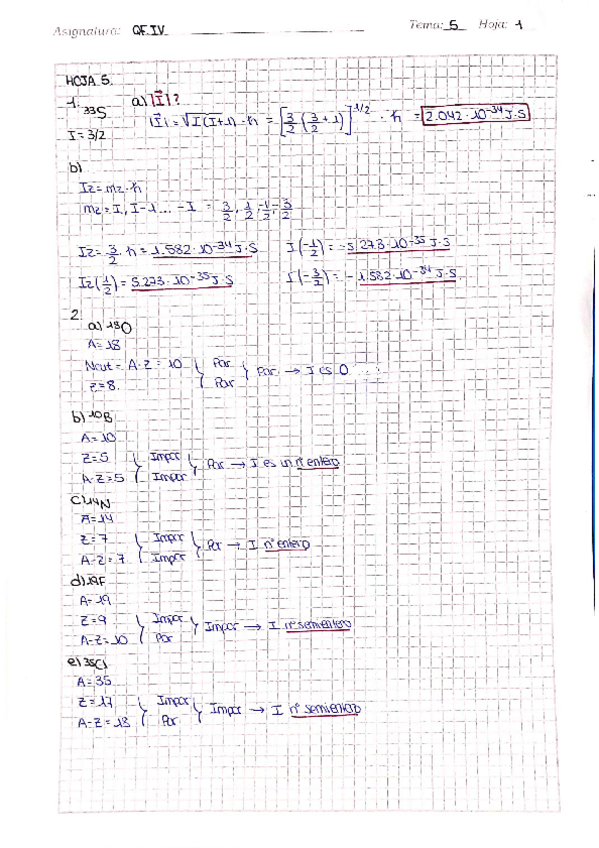 Asignatura: QF IV Tema: 5 Hoja: 1
HOJA 5
1. 33S a) |I|?
I = 3/2 |I| = √I(I+1) · ħ = [3/2 (3/2 + 1)]^1/2 · ħ = 2.042 · 10^-34 J·S
b)
Iz = mz · ħ
mz = I, I-1 ... -I = 3/2, 1/2, -1/2, -3/2
Iz = 3/2 · ħ = 1.582 · 10^-34 J·S I(-1/2) = -5.273 · 10^-35 J·S
Iz(1/2) = 5.273 · 10^-35 J·S I(-3/2) = -1.582 · 10^-34 J·S
2.
a) 18O
A = 18
Neut = A-Z = 10 Par
Z = 8 Par Par → I es 0
b) 10B
A = 10
Z = 5 Impar
A-Z = 5 Impar Par → I es un nº entero
C) 14N
A = 14
Z = 7 Impar
A-Z = 7 Impar Par → I nº entero
d) 19F
A = 19
Z = 9 Impar
A-Z = 10 Par Impar → I nº semientero
e) 35Cl
A = 35
Z = 17 Impar
A-Z = 18 Par Impar → I nº semientero